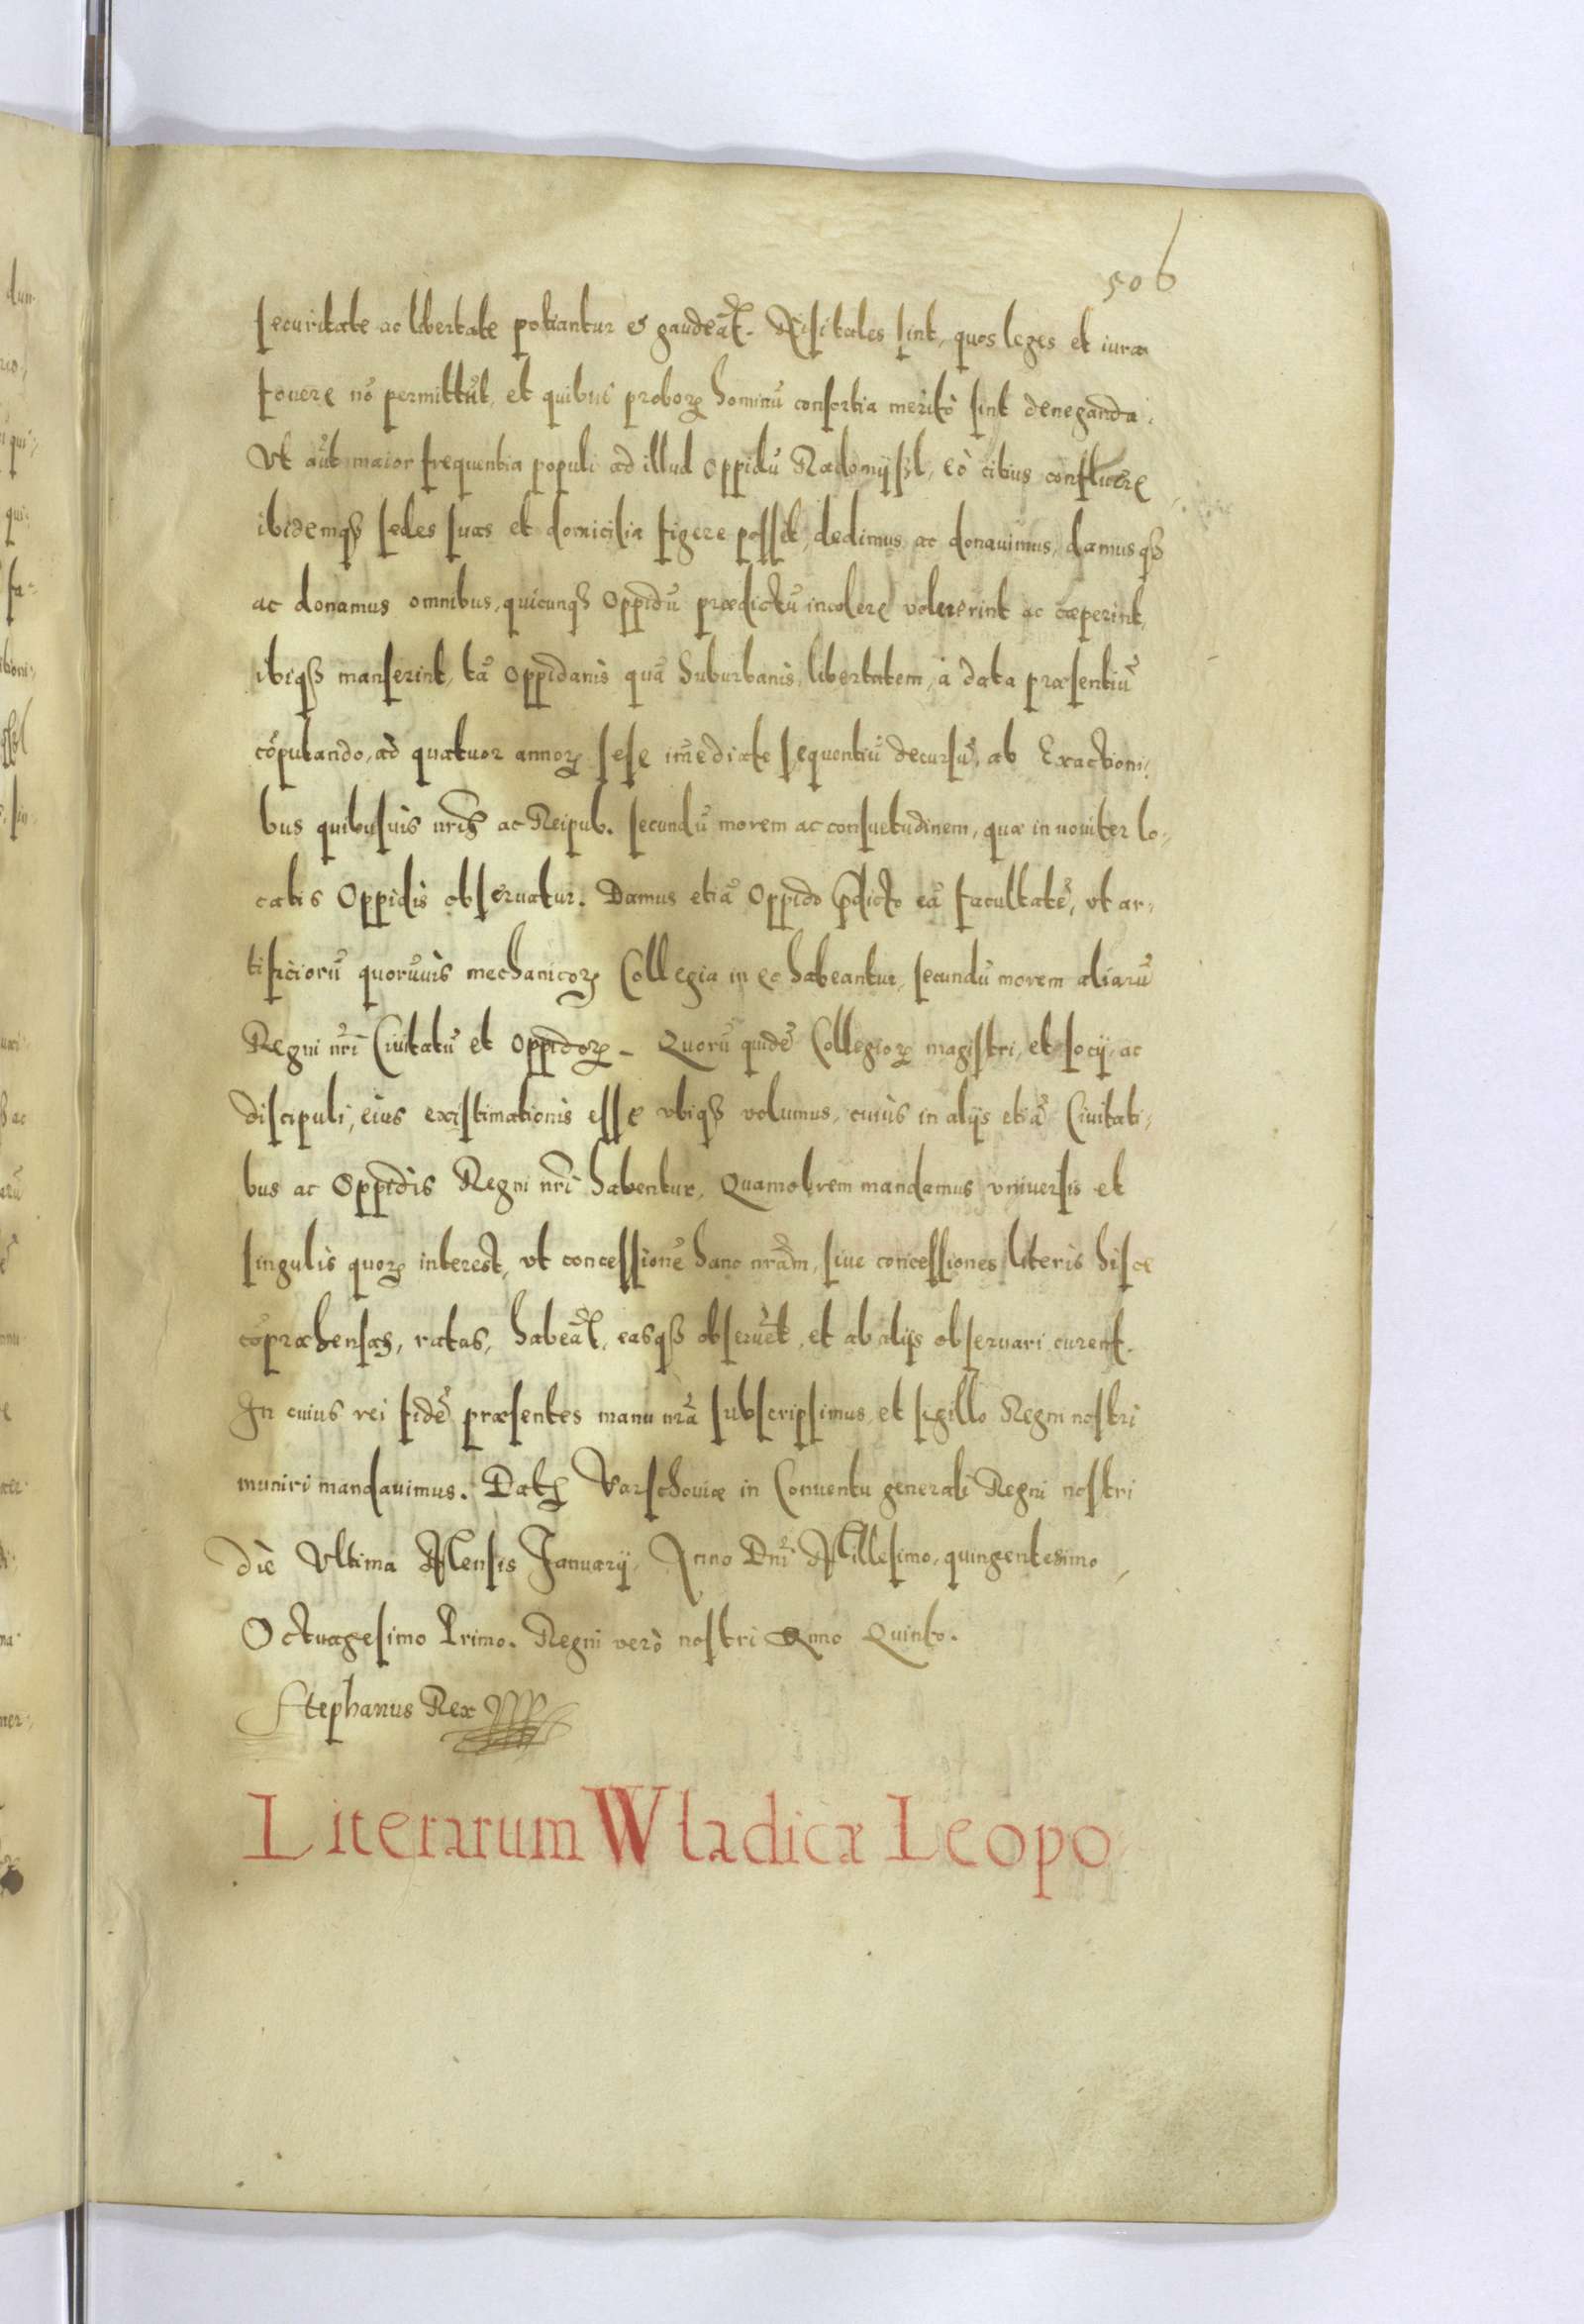 506
securitate ac libertate potiantur et gaudeāt. Nisi tales sint, quos leges et iura
fouere nō permittūt, et quibus probor̄ hominū consortia meritò sint deneganda.
Vt aūt maior frequentia populi ad illud Oppidū Radomijsl, eò citius confluere
ibidemq₃ sedes suas et domicilia figere possit, dedimus ac donauimus, damusq₃
ac donamus omnibus, quicunq₃ Oppidū prædictū incolere voluerint ac cæperint,
ibiq₃ manserint, tā Oppidanis quā Suburbanis, libertatem, à data præsentiū
cōputando, ad quatuor annor̄ sese imēdiate sequentiū decursū, ab Exactioni,
bus quibusuis nris ac Reipub. secundū morem ac consuetudinem, quæ in nouiter lo,
catis Oppidis obseruatur. Damus etiā Oppido p̄dicto eā facultatē, vt ar,
tificiorū quorūuis mechanicor̄ Collegia in eo habeantur, secundū morem aliarū
Regni nr̄i Ciuitatū et Oppidor̄ - Quorū quidē Collegior̄ magistri, et socij, ac
discipuli, eius existimationis esse vbiq₃ volumus, cuius in alijs etiā Ciuitati,
bus ac Oppidis Regni nr̄i habentur. Quamobrem mandamus vniuersis et
singulis quor̄ interest, vt concessionē hanc nr̄am, siue concessiones literis hisce
cōpræhensas, ratas, habeāt, easq₃ obseruēt, et ab alijs obseruari curent.
In cuius rei fidē præsentes manu nr̄a subscripsimus, et sigillo Regni nostri
muniri mandauimus. Dat₃ Varschouiæ in Conuentu generali Regni nostri
die Vltima Mensis Januarij, Anno Dn̄i Millesimo, quingentesimo,
Octuagesimo Primo. Regni verò nostri Anno Quinto.
Stephanus Rex
Literarum Wladicæ Leopo